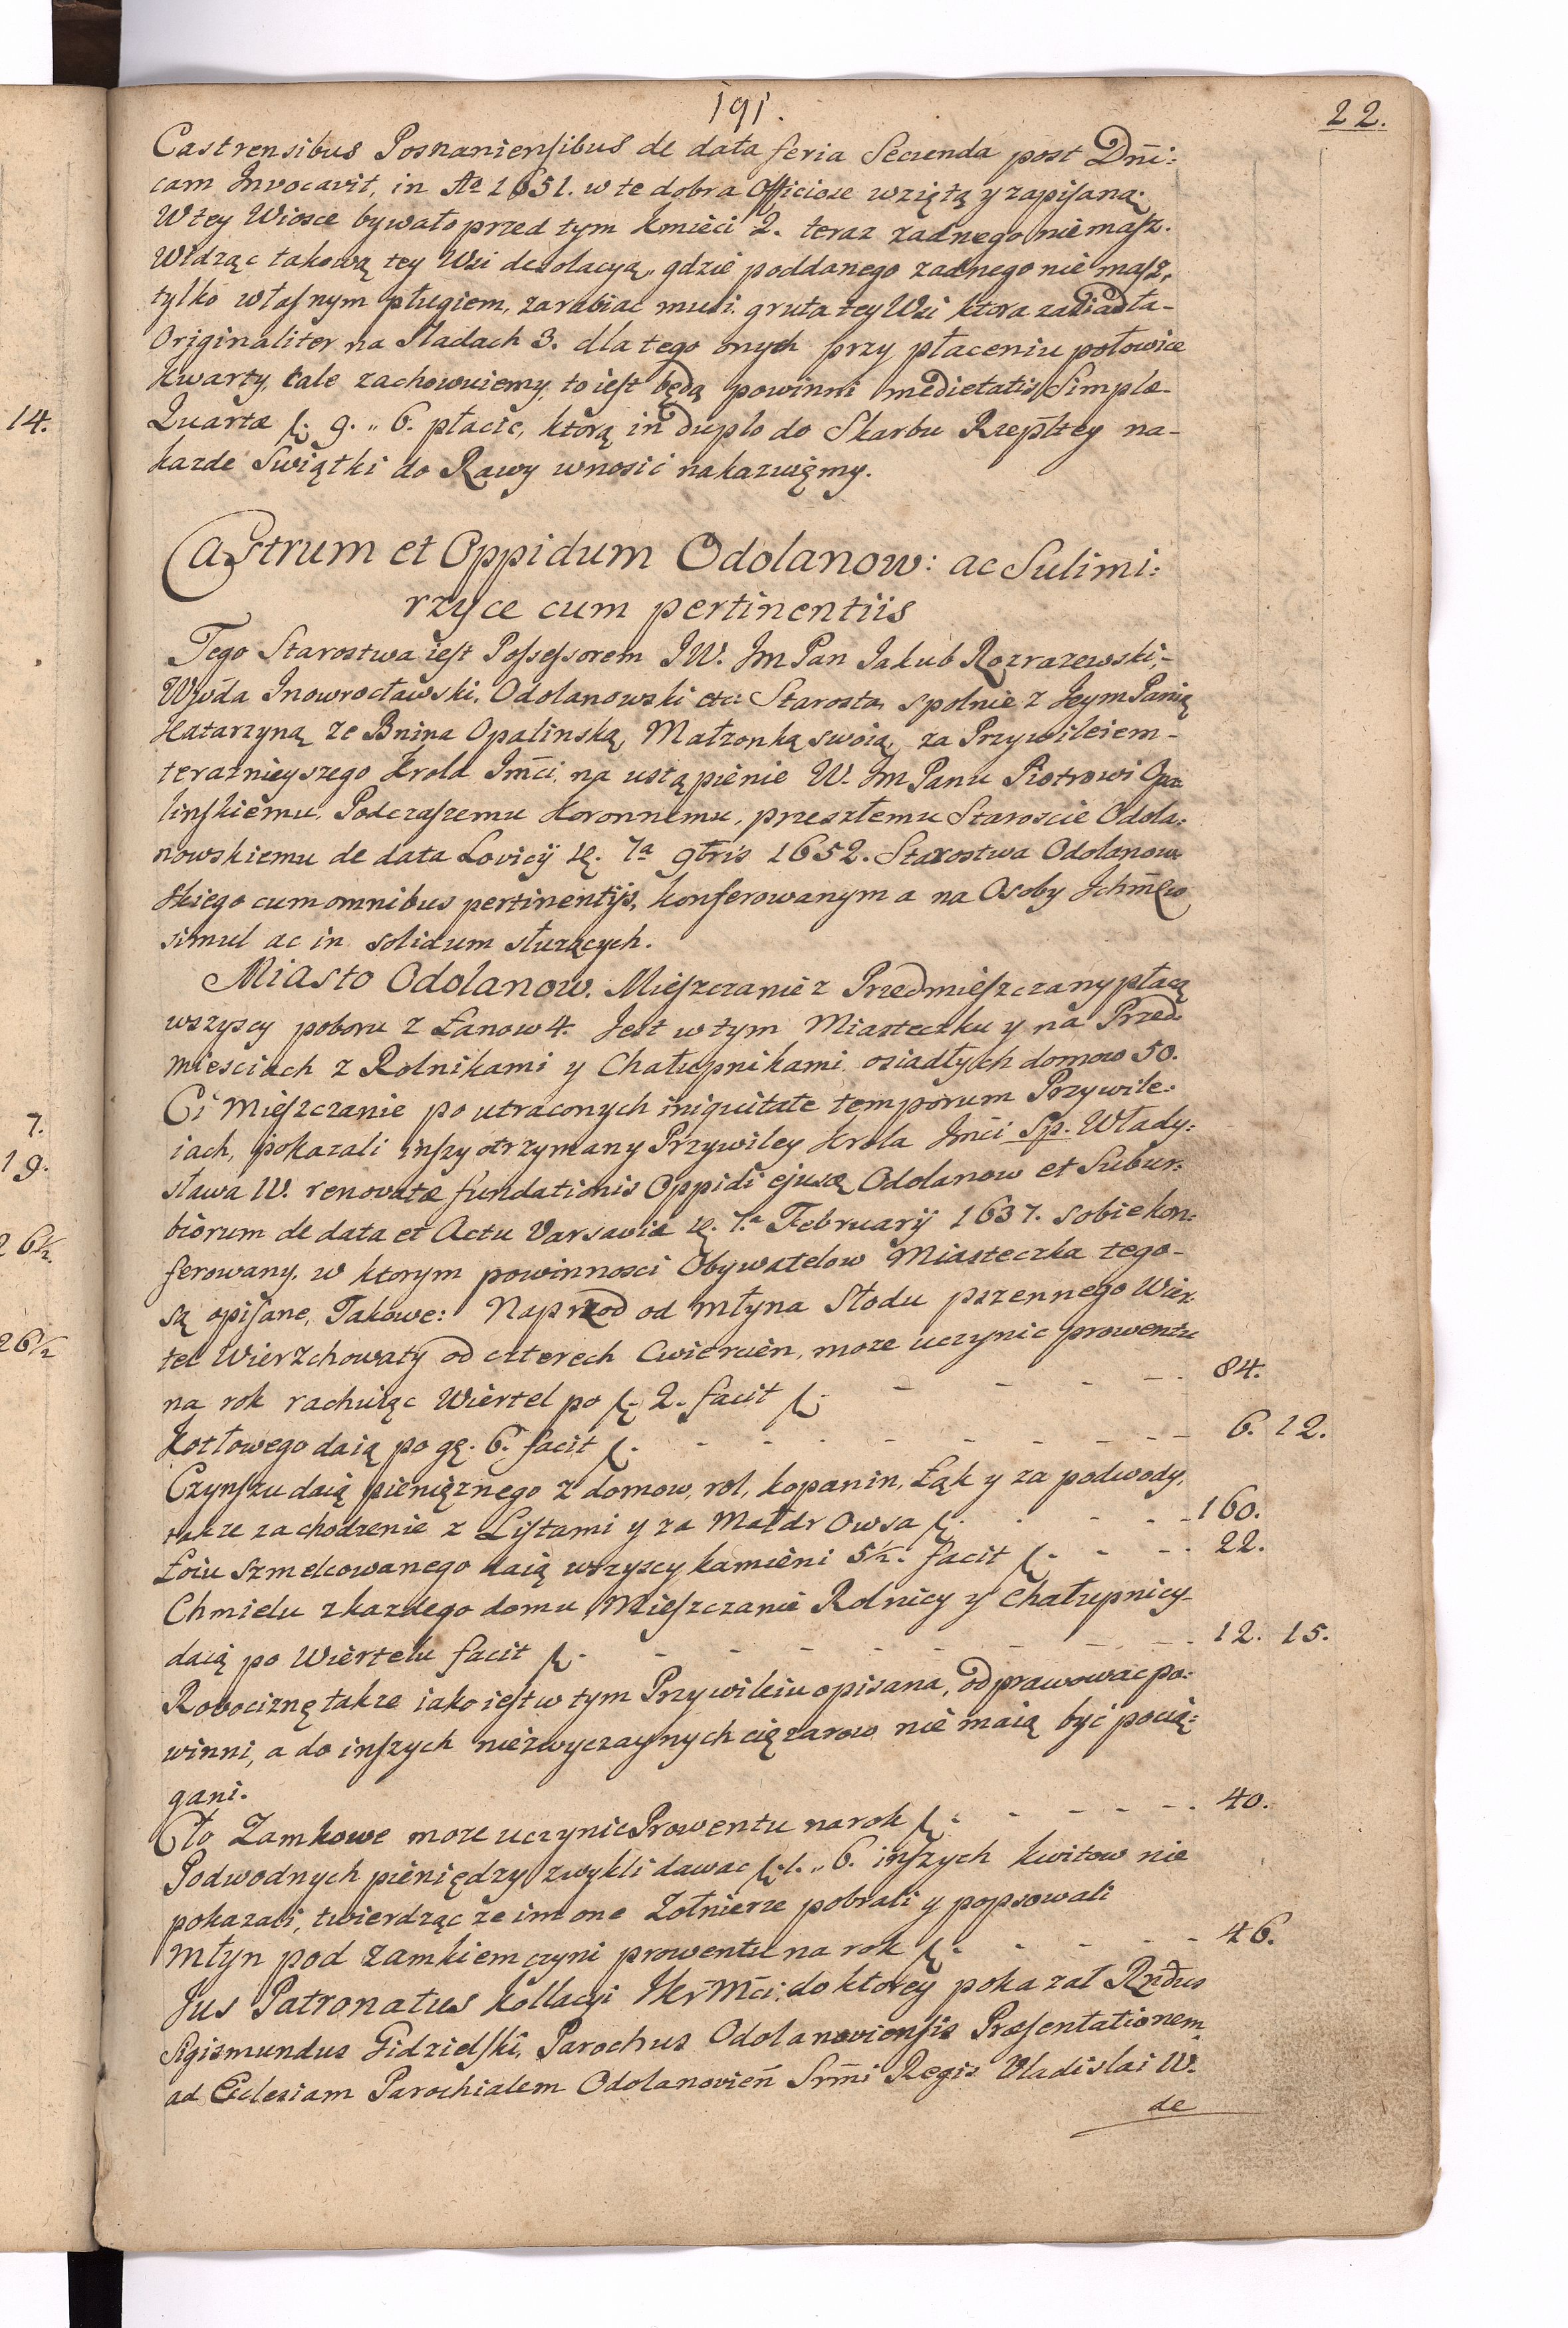 191.
22.
Castrensibus Posnaniensibus de data feria Secunda post Dn̄i:
cam Invocavit, in Aō 1651. w te dobra Officiose wziętą y zapisaną.
W tey Wiosce bywało przed tym Kmieci 2. teraz zadnego nie masz.
Widząc takową tey Wsi desolacyą, gdzie poddanego zadnego nie masz,
tylko własnym pługiem, zarabiac musi. gruta tey Wsi ktora zasiadła-
Originaliter na Sladach 3. dla tego onych przy płaceniu połowice
Kwarty, cale zachowuiemy, to iest będą powinni medietatis Simplæ-
Quartæ f. 9. „ 6. płacic, ktorą in duplo do Skarbu Rzepltey na-
kazde Swiątki do Rawy wnosić nakazuięmy.
Castrum et Oppidum Odolanow: ac Sulimi:
rzyce cum pertinentiis
Tego Starostwa iest Possessorem JW. Jm Pan Jakub Rozrazewski,-
Wjwda Inowrocławski, Odolanowski etc: Starosta, spolnie z Jeym Panią
Katarzyną ze Bnina Opalinską, Małzonką swoią, za Przywileiem-
teraznieyszego Krola Jm̄ci, na ustąpienie W. Jm Panu Piotrowi Opa:
linskiemu, Podczaszemu Koronnemu, przeszłemu Staroscie Odola:
nowskiemu de data Lovicÿ d. 7a 9bris 1652. Starostwa Odolanow
skiego cum omnibus pertinentijs, konferowanym a na Osoby Ichm̄ciow
simul ac in solidum słuzących.
Miasto Odolanow. Mieszczanie z Przedmieszczany płacą
wszyscy poboru z Łanow 4. Jest w tym Miasteczku y na Przed
miesciach z Rolnikami y Chałupnikami osiadłych domow 50.
Ci Mieszczanie po utraconych iniquitate temporum Przywile:
iach, pokazali inszy otrzymany Przywiley Krola Jmći Sp. Włady:
sława IV. renovatæ fundationis Oppidi ejusq Odolanow et Subur:
biorum de data et Actu Varsavia d. 7.a Februarij 1637. sobie kon:
ferowany. w ktorym powinnosci Obywatelow Miasteczka tego-
są opisane, Takowe: Naprzod od Młyna Słodu pszennego Wier-
tel Wierzchowaty od czterech Cwiercien, moze uczynic prowentu
na rok rachuiąc Wiertel po f. 2. facit f. - - - - 84.
Kotłowego daią po gr. 6. facit f. - - - - - - - - - 6. 12.
Czynszu daią pienięznego z domow, rol, kopanin, Łąk y za podwody,
takze zachodzenie z Listami y za Małdr Owsa f. - - - - 160.
Łoiu szmelcowanego daią wszyscy kamieni 5½. facit f. - - - 22.
Chmielu z kazdego domu, Mieszczanie Rolnicy y Chałupnicy-
daią po Wiertelu facit f. - - - - - - - - - 12. 15.
Robociznę takze iako iest w tym Przywileiu opisana, odprawowac po:
winni, a do inszych niezwyczaynych cięzarow nie maią być pocią:
gani.
Cło Zamkowe moze uczynic Prowentu na rok f. - - - - 40.
Podwodnych pieniędzy zwykli dawac f. 1. „ 6. inszych kwitow nie
pokazali, twierdząc ze im one Zołnierze pobrali y popsowali
Młyn pod Zamkiem czyni prowentu na rok f. - - - - 46.
Jus Patronatus Kollacyi JKr̄Mci, do ktorey pokazał Rndus
Sigismundus Gidzielski, Parochus Odolanoviensis Præsentationem
ad Ecclesiam Parochialem Odolanovień Srm̄i Regis Vladislai IV.
de
14.
7.
19.
26½.
26½